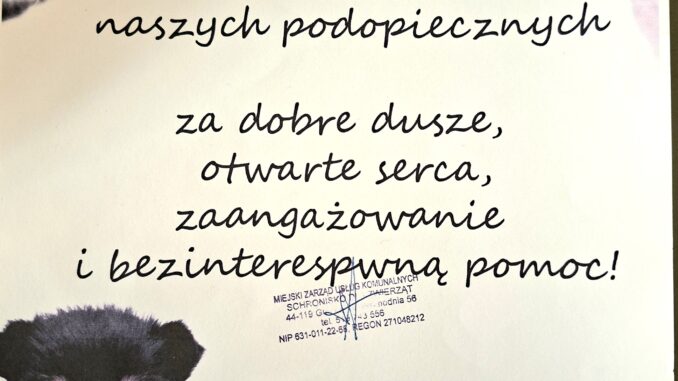 naszych podopiecznych
za dobre dusze,
otwarte serca,
zaangażowanie
i bezinterespwną pomoc!
MIEJSKI ZARZĄD USŁUG KOMUNALNYCH
SCHRONISKO ZWIERZĄT
44-119 56
tel.
NIP 631-011-22-65, REGON 271048212